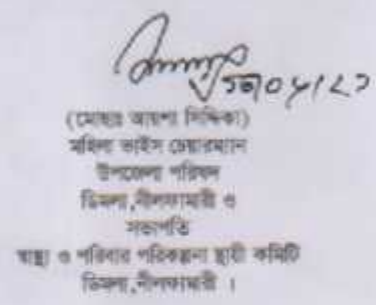 (মোছাঃ আয়শা সিদ্দিকা)
মহিলা ভাইস চেয়ারম্যান
উপজেলা পরিষদ
ডিমলা,নীলফামারী ও
সভাপতি
স্বাস্থ্য ও পরিবার পরিকল্পনা স্থায়ী কমিটি
ডিমলা,নীলফামারী ।